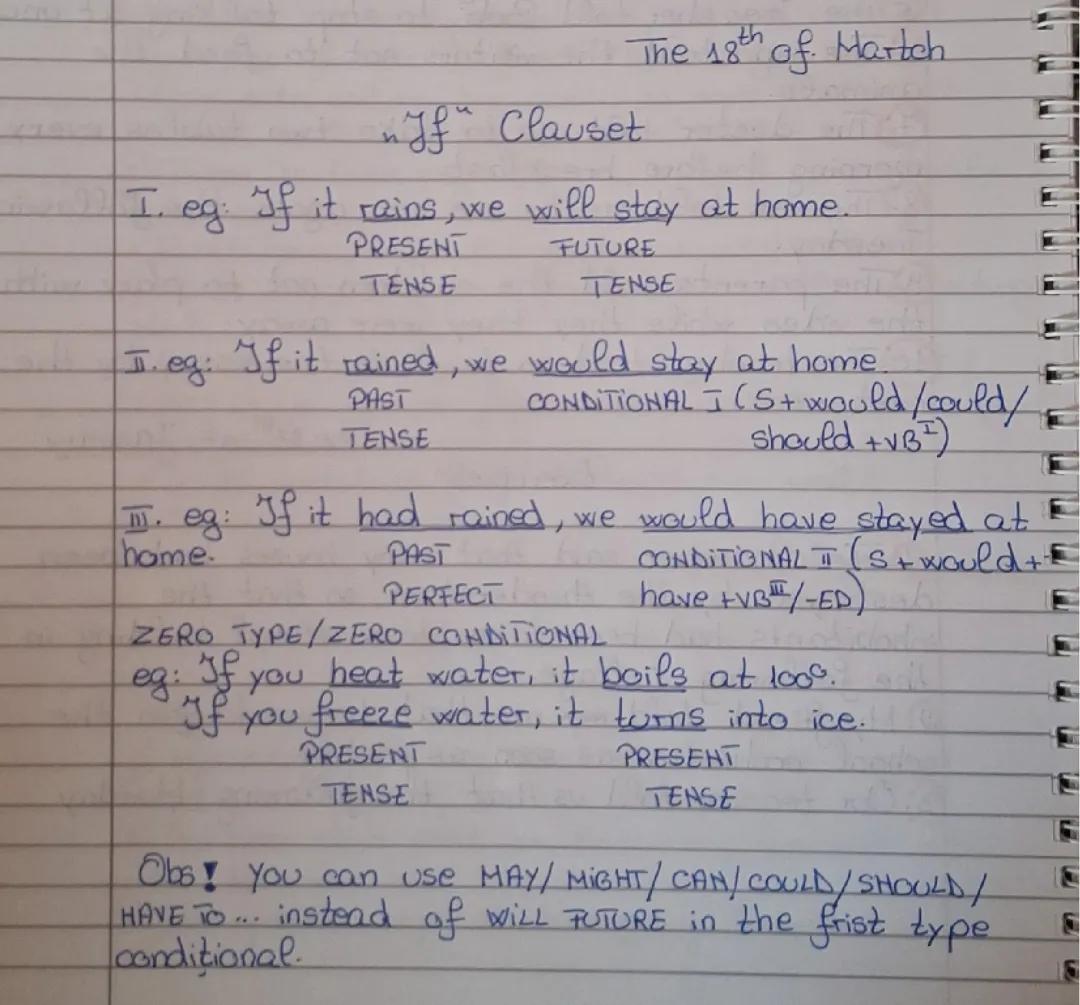 The 18th of Martch
„If“ Clauset
I. eg: If it rains, we will stay at home.
PRESENT FUTURE
TENSE TENSE
II. eg: If it rained, we would stay at home.
PAST CONDITIONAL I (S+ would/could/
TENSE should +VB I)
III. eg: If it had rained, we would have stayed at
home. PAST CONDITIONAL II (S+would+
PERFECT have +VB III/-ED)
ZERO TYPE/ZERO CONDITIONAL
eg: If you heat water, it boils at 100°.
If you freeze water, it turns into ice.
PRESENT PRESENT
TENSE TENSE
Obs! You can use MAY/MIGHT/CAN/COULD/SHOULD/
HAVE TO... instead of WILL FUTURE in the frist type
condițional.